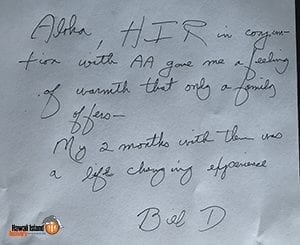 Aloha, HIR in conjunc-
tion with AA gave me a feeling
of warmth that only a family
offers—
My 2 months with them was
a life changing experience
Bill D
Hawaii Island
Recovery